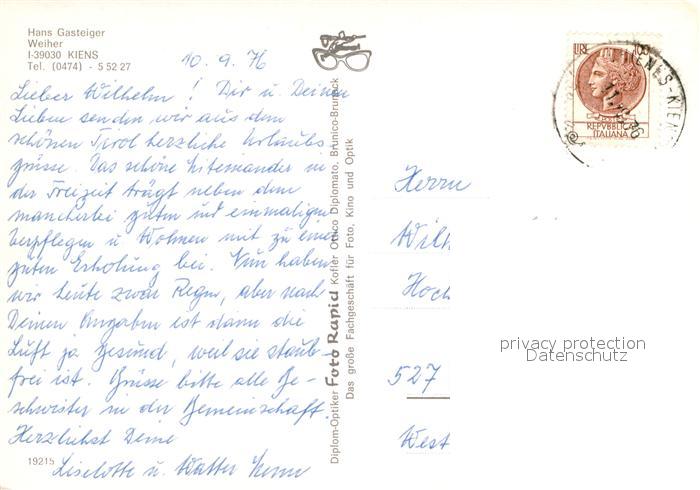 Hans Gasteiger
Weiher
I-39030 KIENS
Tel. (0474) - 5 52 27
10. 9. 76
Lieber Wilhelm! Dir u. Deinen
Lieben senden wir aus dem
schönen Tirol herzliche Urlaubs-
grüsse. Das schöne Miteinander in
der Freizeit trägt neben dem
mancherlei guten und einmaligen
Verpflegen u Wohnen mit zu einer
guten Erholung bei. Nun haben
wir heute zwar Regen, aber nach
Deinen Angaben ist dann die
Luft ja gesund, weil sie staub-
frei ist. Grüsse bitte alle Ge-
schwister in der Gemeinschaft.
Herzlichst Deine
Liselotte u. Walter
19215
Diplom-Optiker Foto Rapid Kofler Ottico Diplomato, Brunico-Bruneck
Das große Fachgeschäft für Foto, Kino und Optik
LIRE 100
REPVBBLICA
ITALIANA
CHIENES-KIENS
Herrn
Wilh
Hoch
527
West
privacy protection
Datenschutz